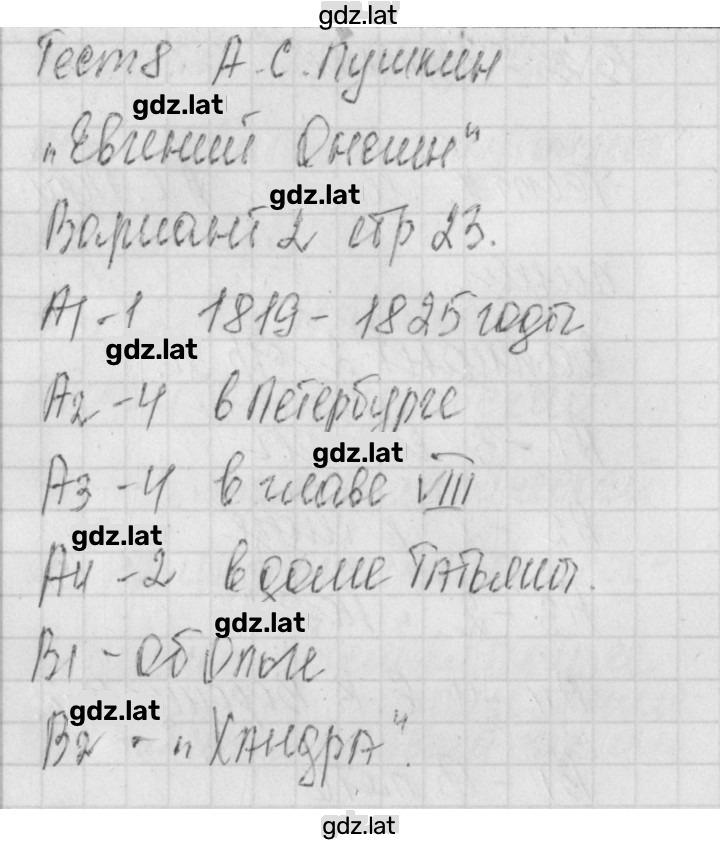 gdz.lat
Тест 8 А.С. Пушкин
gdz.lat
„Евгений Онегин"
gdz.lat
Вариант 2 стр 23.
А1 - 1 1819 - 1825 годы
gdz.lat
А2 - 4 в Петербурге
gdz.lat
А3 - 4 в главе VIII
gdz.lat
А4 - 2 в доме Татьяны.
gdz.lat
В1 - Об Ольге
gdz.lat
В2 - „Хандра".
gdz.lat